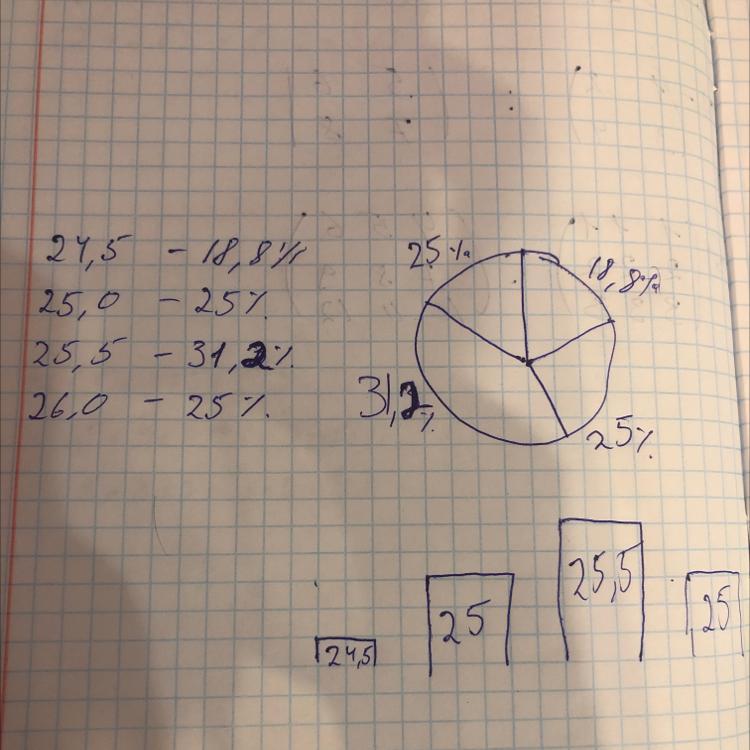 24,5 - 18,8%
25,0 - 25%
25,5 - 31,2%
26,0 - 25%
25%
18,8%
31,2%
25%
24,5
25
25,5
25